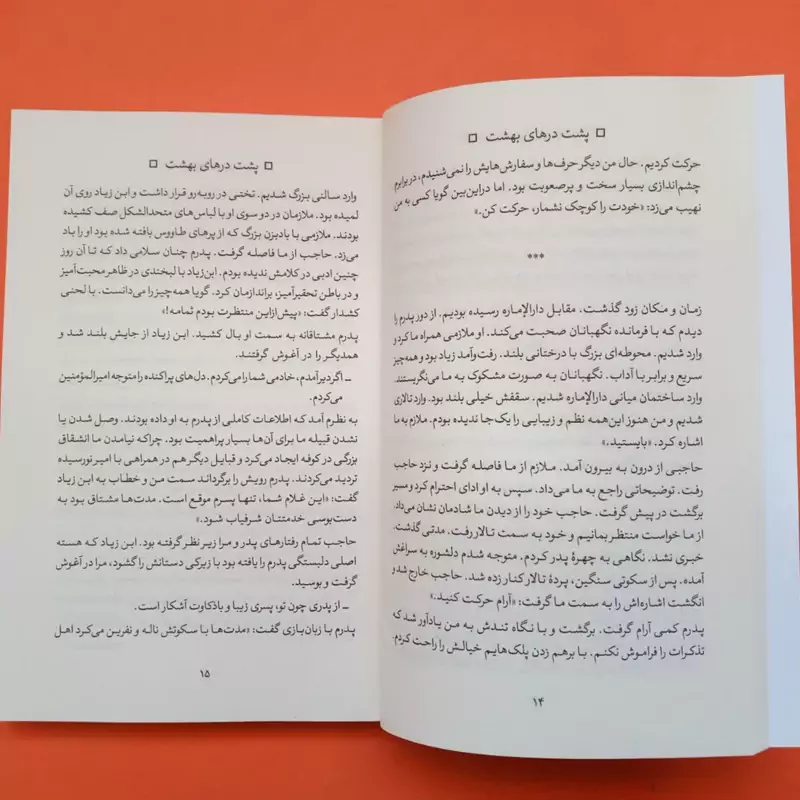 پشت درهای بهشت
حرکت کردیم. حال من دیگر حرف‌ها و سفارش‌هایش را نمی‌شنیدم، در برابرم
چشم‌اندازی بسیار سخت و پرصعوبت بود. اما دراین‌بین گویا کسی به من
نهیب می‌زد: «خودت را کوچک نشمار، حرکت کن.»
***
زمان و مکان زود گذشت. مقابل دارالإماره رسیده بودیم. از دور پدرم را
دیدم که با فرمانده نگهبانان صحبت می‌کند. او ملازمی همراه ما کرد و
وارد شدیم. محوطه‌ای بزرگ با درختانی بلند. رفت‌وآمد زیاد بود و همه‌چیز
سریع و برابر با آداب. نگهبانان به صورت مشکوک به ما می‌نگریستند.
وارد ساختمان میانی دارالإماره شدیم. سقفش خیلی بلند بود. وارد تالاری
شدیم و من هنوز این‌همه نظم و زیبایی را یک‌جا ندیده بودم. ملازم به ما
اشاره کرد. «بایستید.»
حاجبی از درون به بیرون آمد. ملازم از ما فاصله گرفت و نزد حاجب
رفت. توضیحاتی راجع به ما می‌داد. سپس به او ادای احترام کرد و مسیر
برگشت در پیش گرفت. حاجب خود را از دیدن ما شادمان نشان می‌داد.
از ما خواست منتظر بمانیم و خود به سمت تالار رفت. مدتی گذشت.
خبری نشد. نگاهی به چهرهٔ پدر کردم. متوجه شدم دلشوره به سراغش
آمده. پس از سکوتی سنگین، پردهٔ تالار کنار زده شد. حاجب خارج شد و
انگشت اشاره‌اش را به سمت ما گرفت: «آرام حرکت کنید.»
پدرم کمی آرام گرفت. برگشت و با نگاه تندش به من یادآور شد که
تذکرات را فراموش نکنم. با برهم زدن پلک‌هایم خیالش را راحت کردم.
۱۴
پشت درهای بهشت
وارد سالنی بزرگ شدیم. تختی در روبه‌رو قرار داشت و ابن زیاد روی آن
لمیده بود. ملازمان در دو سوی او با لباس‌های متحدالشکل صف کشیده
بودند. ملازمی با بادبزن بزرگ که از پرهای طاووس بافته شده بود او را باد
می‌زد. حاجب از ما فاصله گرفت. پدرم چنان سلامی داد که تا آن روز
چنین ادبی در کلامش ندیده بودم. ابن‌زیاد با لبخندی در ظاهر محبت‌آمیز
و در باطن تحقیرآمیز، براندازمان کرد. گویا همه‌چیز را می‌دانست. با لحنی
کشدار گفت: «پیش‌ازاین منتظرت بودم ثمامه!»
پدرم مشتاقانه به سمت او بال کشید. ابن زیاد از جایش بلند شد و
همدیگر را در آغوش گرفتند.
ــ اگر دیر آمدم، خادمی شما را می‌کردم. دل‌های پراکنده را متوجه امیرالمؤمنین
می‌کردم.
به نظرم آمد که اطلاعات کاملی از پدرم به او داده بودند. وصل شدن یا
نشدن قبیله ما برای آن‌ها بسیار پراهمیت بود. چراکه نیامدن ما انشقاق
بزرگی در کوفه ایجاد می‌کرد و قبایل دیگر هم در همراهی با امیر نورسیده
تردید می‌کردند. پدرم رویش را برگرداند سمت من و خطاب به ابن زیاد
گفت: «این غلام شما، تنها پسرم موقع است. مدت‌ها مشتاق بود به
دست‌بوسی خدمتتان شرفیاب شود.»
حاجب تمام رفتارهای پدر و مرا زیر نظر گرفته بود. ابن زیاد که هسته
اصلی دلبستگی پدرم را یافته بود با زیرکی دستانش را گشود، مرا در آغوش
گرفت و بوسید.
ــ از پدری چون تو، پسری زیبا و باذکاوت آشکار است.
پدرم با زبان‌بازی گفت: «مدت‌ها با سکوتش ناله و نفرین می‌کرد اهل
۱۵